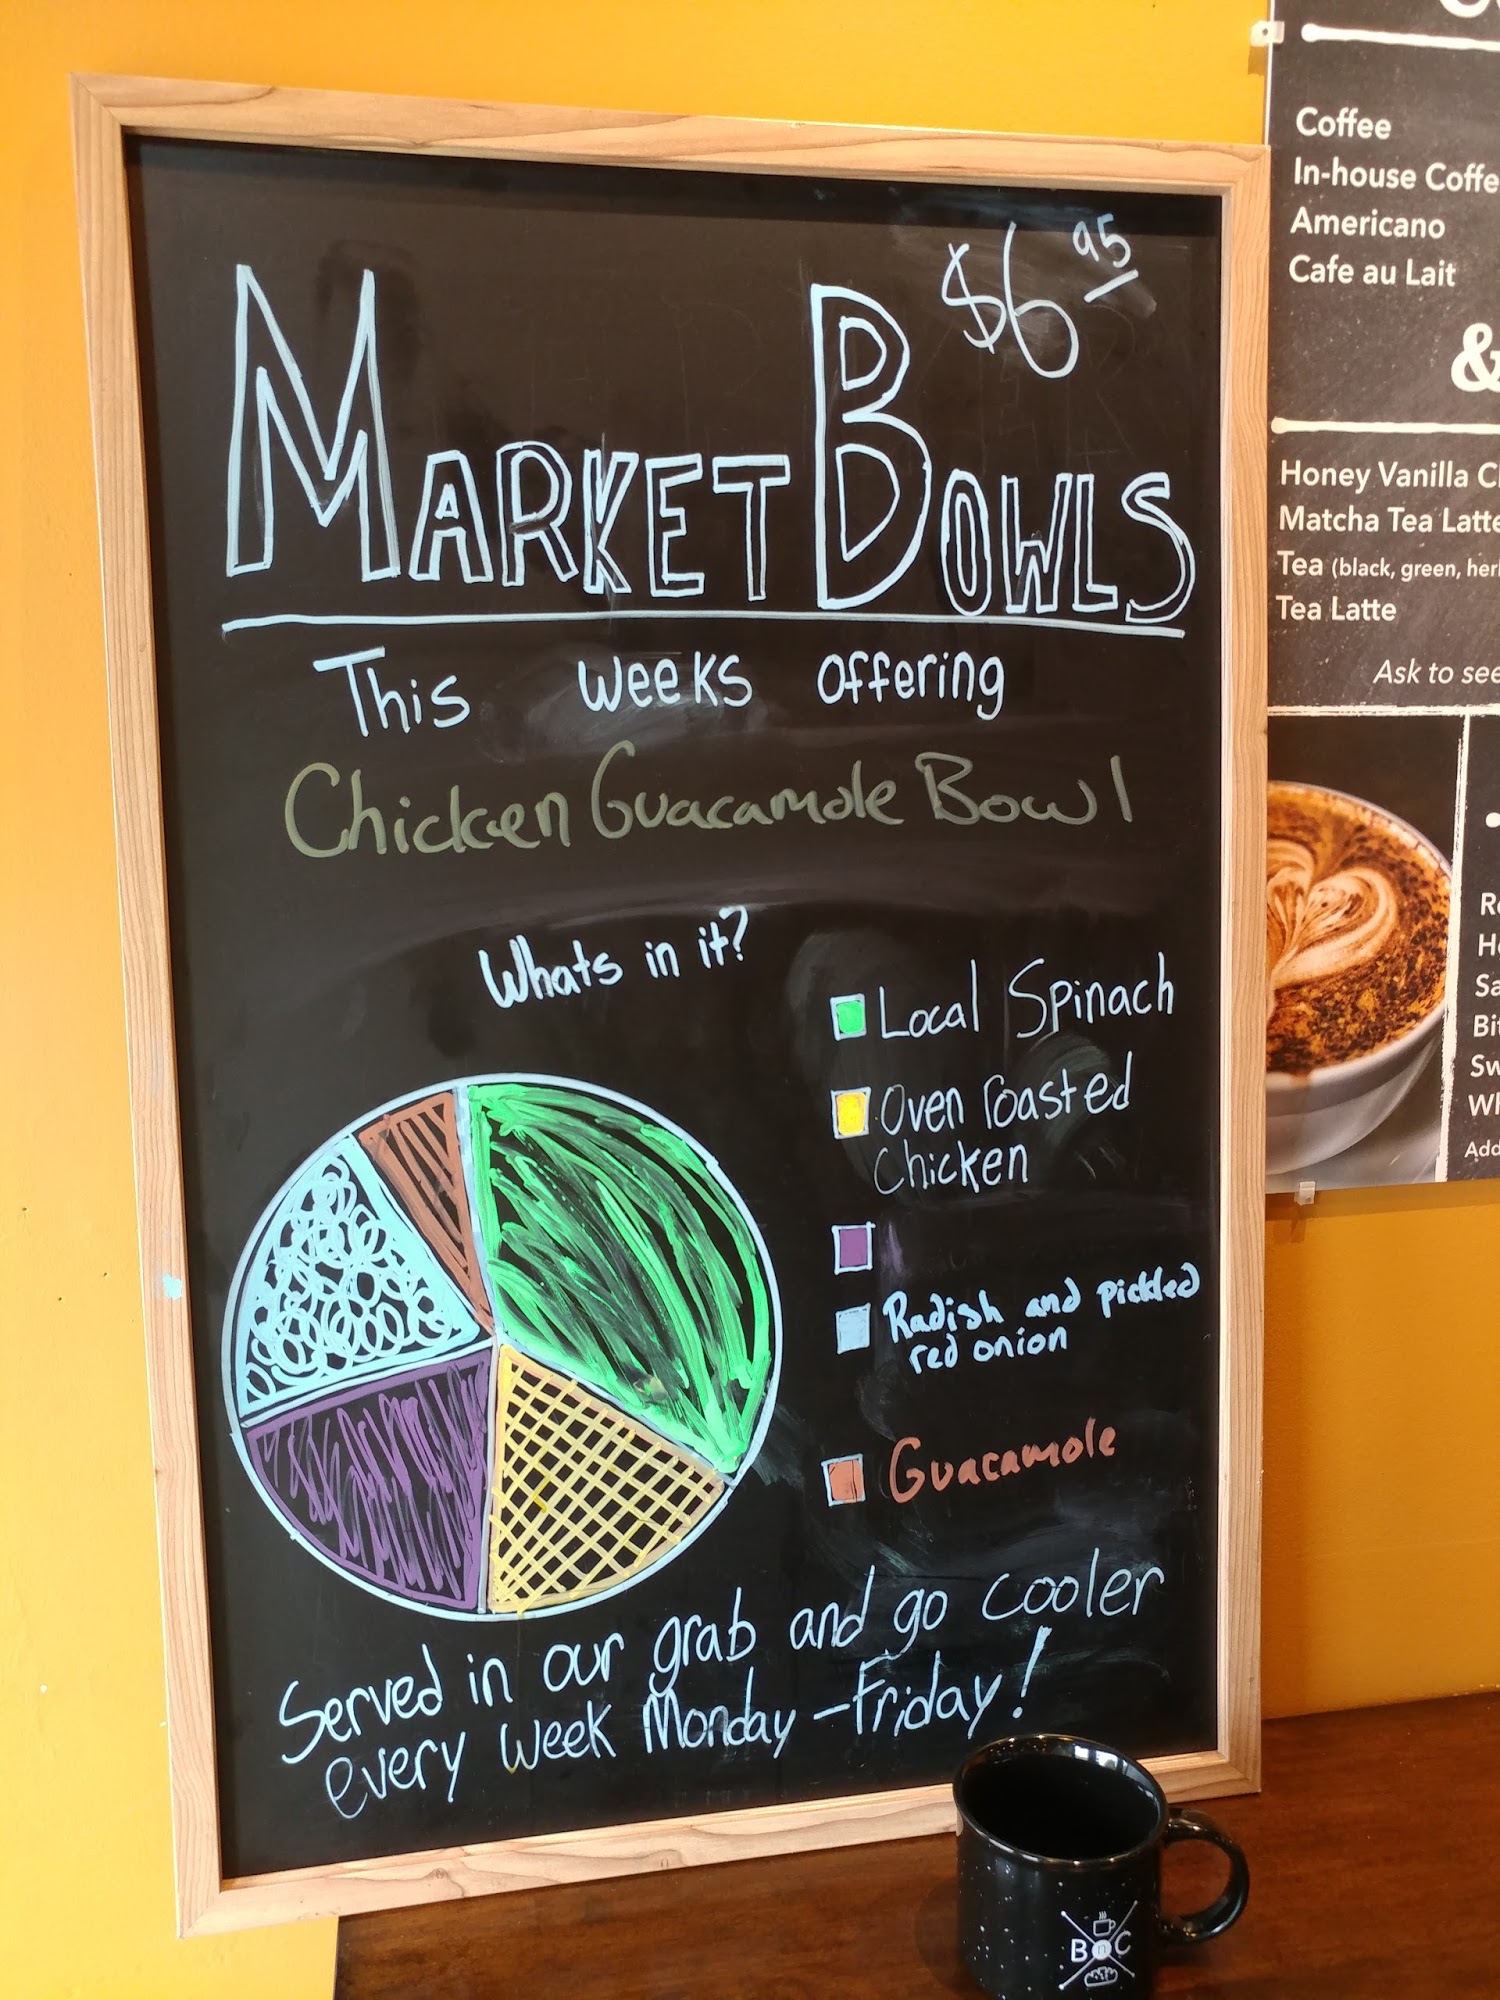 $6.95
MARKET BOWLS
This weeks offering
Chicken Guacamole Bowl
Whats in it?
Local Spinach
Oven roasted
Chicken
Radish and pickled
red onion
Guacamole
Served in our grab and go cooler
every week Monday - Friday!
Coffee
In-house
Americano
Cafe au Lait
&
Honey Vanilla
Matcha Tea Latte
Tea (black, green,
Tea Latte
Ask to see
B n C